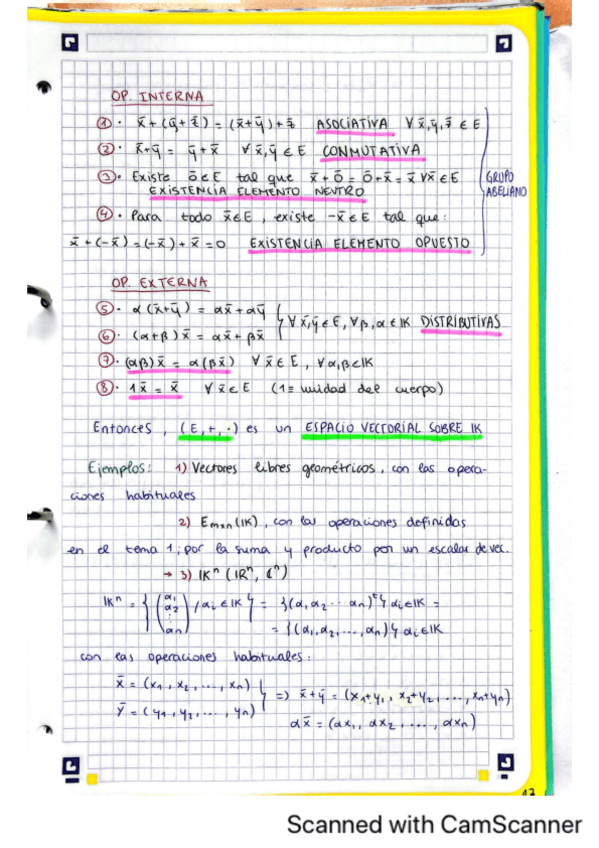 OP. INTERNA
①· x̄+(ȳ+z̄) = (x̄+ȳ)+z̄ ASOCIATIVA ∀x̄,ȳ,z̄ ∈ E
②· x̄+ȳ = ȳ+x̄ ∀x̄,ȳ ∈ E CONMUTATIVA
③· Existe ō∈E tal que x̄+ō = ō+x̄ = x̄ ∀x̄∈E
EXISTENCIA ELEMENTO NEUTRO
GRUPO
ABELIANO
④· Para todo x̄∈E, existe -x̄∈E tal que:
x̄+(-x̄)=(-x̄)+x̄=0 EXISTENCIA ELEMENTO OPUESTO
OP. EXTERNA
⑤· α(x̄+ȳ) = αx̄+αȳ
∀x̄,ȳ∈E, ∀β,α∈IK DISTRIBUTIVAS
⑥· (α+β)x̄ = αx̄+βx̄
⑦· (αβ)x̄ = α(βx̄) ∀x̄∈E, ∀α,β∈IK
⑧· 1x̄ = x̄ ∀x̄∈E (1= unidad del cuerpo)
Entonces, (E,+,·) es un ESPACIO VECTORIAL SOBRE IK
Ejemplos: 1) Vectores libres geométricos, con las opera-
ciones habituales
2) Emxn(IK), con las operaciones definidas
en el tema 1; por la suma y producto por un escalar de vec.
→ 3) IKⁿ (IRⁿ, ℂⁿ)
IKⁿ = {(α1 α2 ⋮ αn) / αi ∈ IK} = {(α1 α2 ... αn)ᵗ} αi∈IK =
= {(α1, α2, ..., αn)} αi∈IK
con las operaciones habituales:
x̄ = (x1, x2, ..., xn)
} => x̄+ȳ = (x1+y1, x2+y2, ..., xn+yn)
ȳ = (y1, y2, ..., yn)
αx̄ = (αx1, αx2, ..., αxn)
Scanned with CamScanner